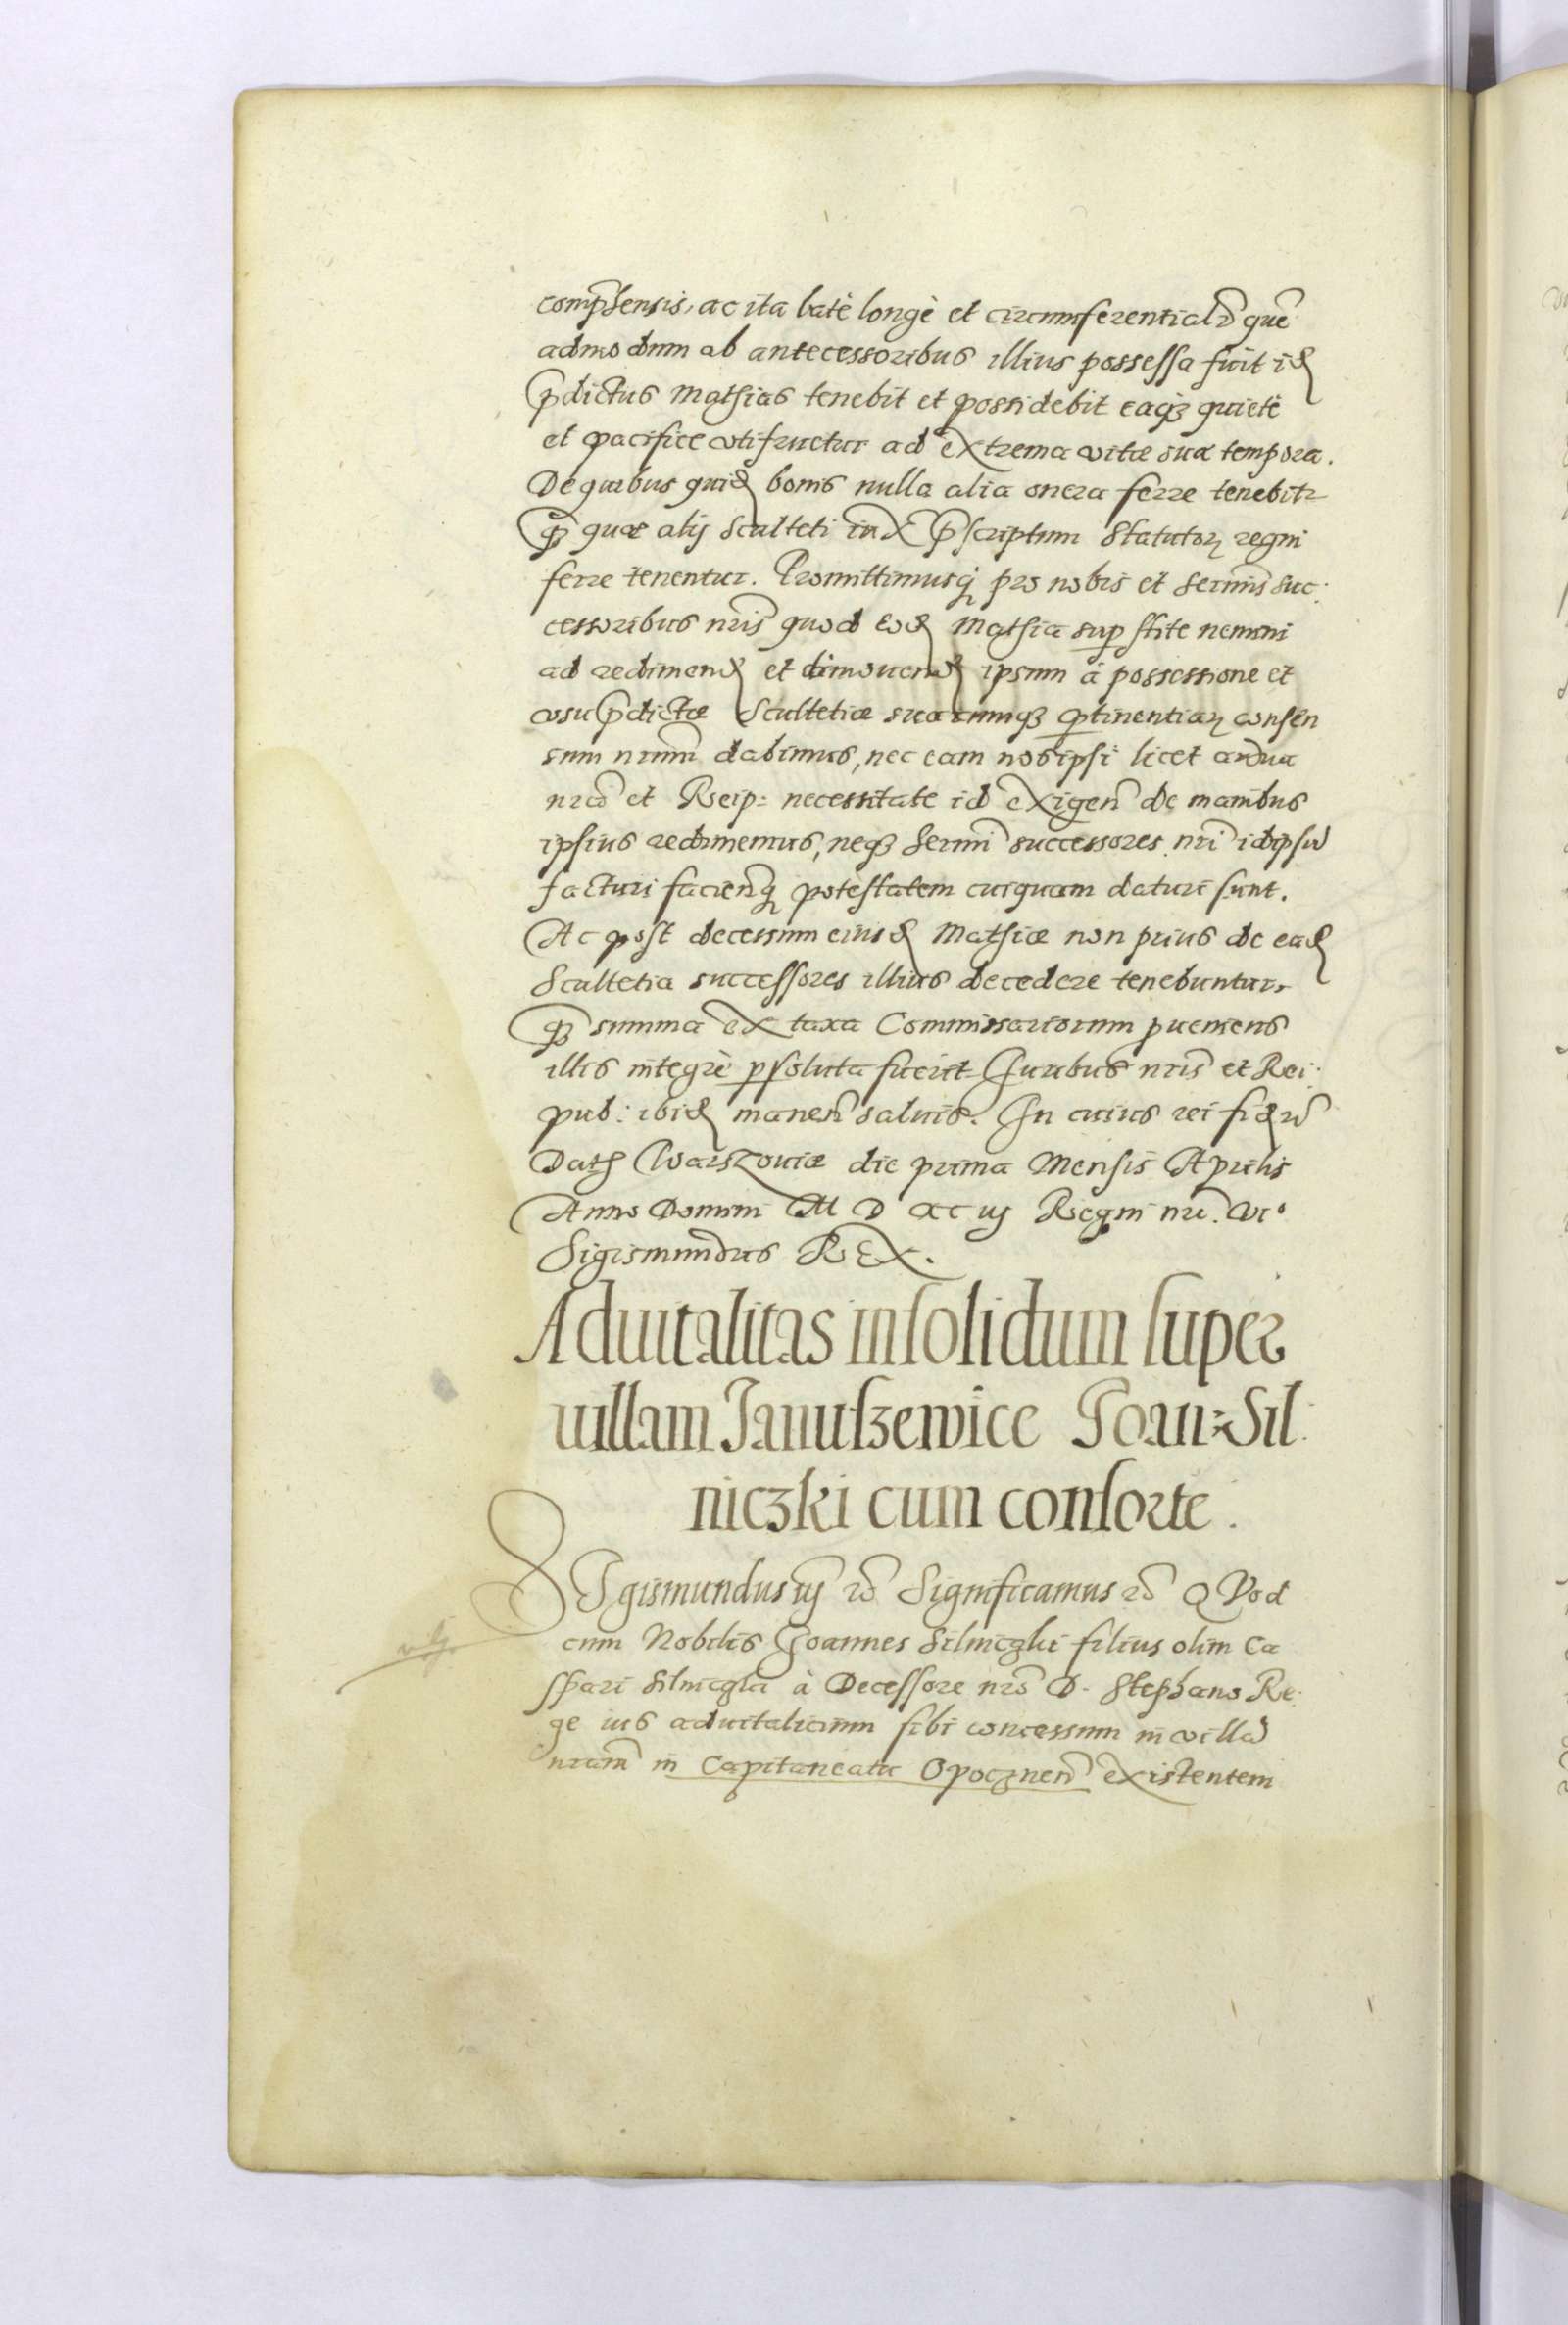 comp̃hensis, ac ita latè longè et circumferentialr̃ quẽ
admodum ab antecessoribus illius possessa fuit id̃
p̃dictus Mathias tenebit et possidebit eaq₃ quietè
et pacifice utifruetur ad extrema vitæ suæ tempora.
De quibus quid̃ bonis nulla alia onera ferre tenebitr
q̃₃ quæ alij Sculteti iux̃ p̃scriptum Statutoꝝ regni
ferre tenentur. Promittimusq́ pro nobis et Serm̃is suc:
cessoribus nr̃is quod eod̃ Mathia suꝑstite nemini
ad redimend̃ et dimouend̃ ipsum à possessione et
vsu p̃dictæ Scultetiæ suarumq₃ ꝑtinentiaꝝ consen
sum nr̃um dabimus, nec eam nos ipsi licet ardua
nr̃a et Reip: necessitate id exigeñ de manibus
ipsius redimemus, neq₃ Serm̃i successores nr̃i idipsũ
facturi faciendiq́ potestatem cuiquam daturi sunt.
Ac post decessum eiusd̃ Mathiæ non prius de ead̃
Scultetia successores illius decedere tenebuntur,
q̃₃ summa ex taxa Commissariorum ꝓueniens
illis integrè ꝑsoluta fuerit Iuribus nr̃is et Rei:
pub: ibid̃ maneñ saluis. In cuius rei fidẽ r̃
Dat̃ Warszouiæ die prima Mensis Aprilis
Anno Domini M D XC iij Regni nr̃i. vi°
Sigismundus REX.
Aduitalitas insolidum super
uillam Januszewice Joan: Sil:
niczki cum consorte.
SIgismundus iij r̃ Significamus r̃ QVod
cum Nobilis Joannes Silniczki filius olim Ca
spari Silniczki à Decessore nr̃o D. Stephano Re:
ge ius aduitalicium sibi concessum in villã
nr̃am in Capitaneatu Opoczneñ existentem